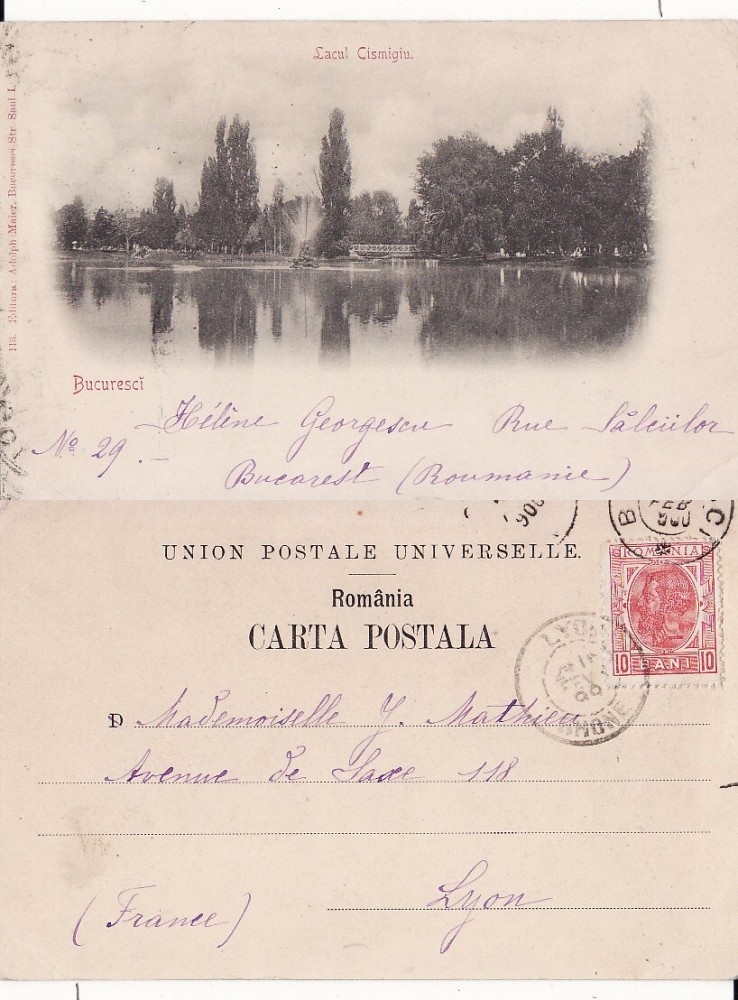 Lacul Cismigiu.
113. Editura: Adolph Maier, Bucuresci, Str. Saul 1.
Bucuresci
Hélène Georgescu Rue Sălciilor
No. 29. —
Bucarest (Roumanie)
900
B CI
FEB
900
UNION POSTALE UNIVERSELLE.
România
CARTA POSTALA
ROMANIA
10 BANI 10
LYON
RHONE
D Mademoiselle J. Mathieu
Avenue de Saxe 118
Lyon
(France)